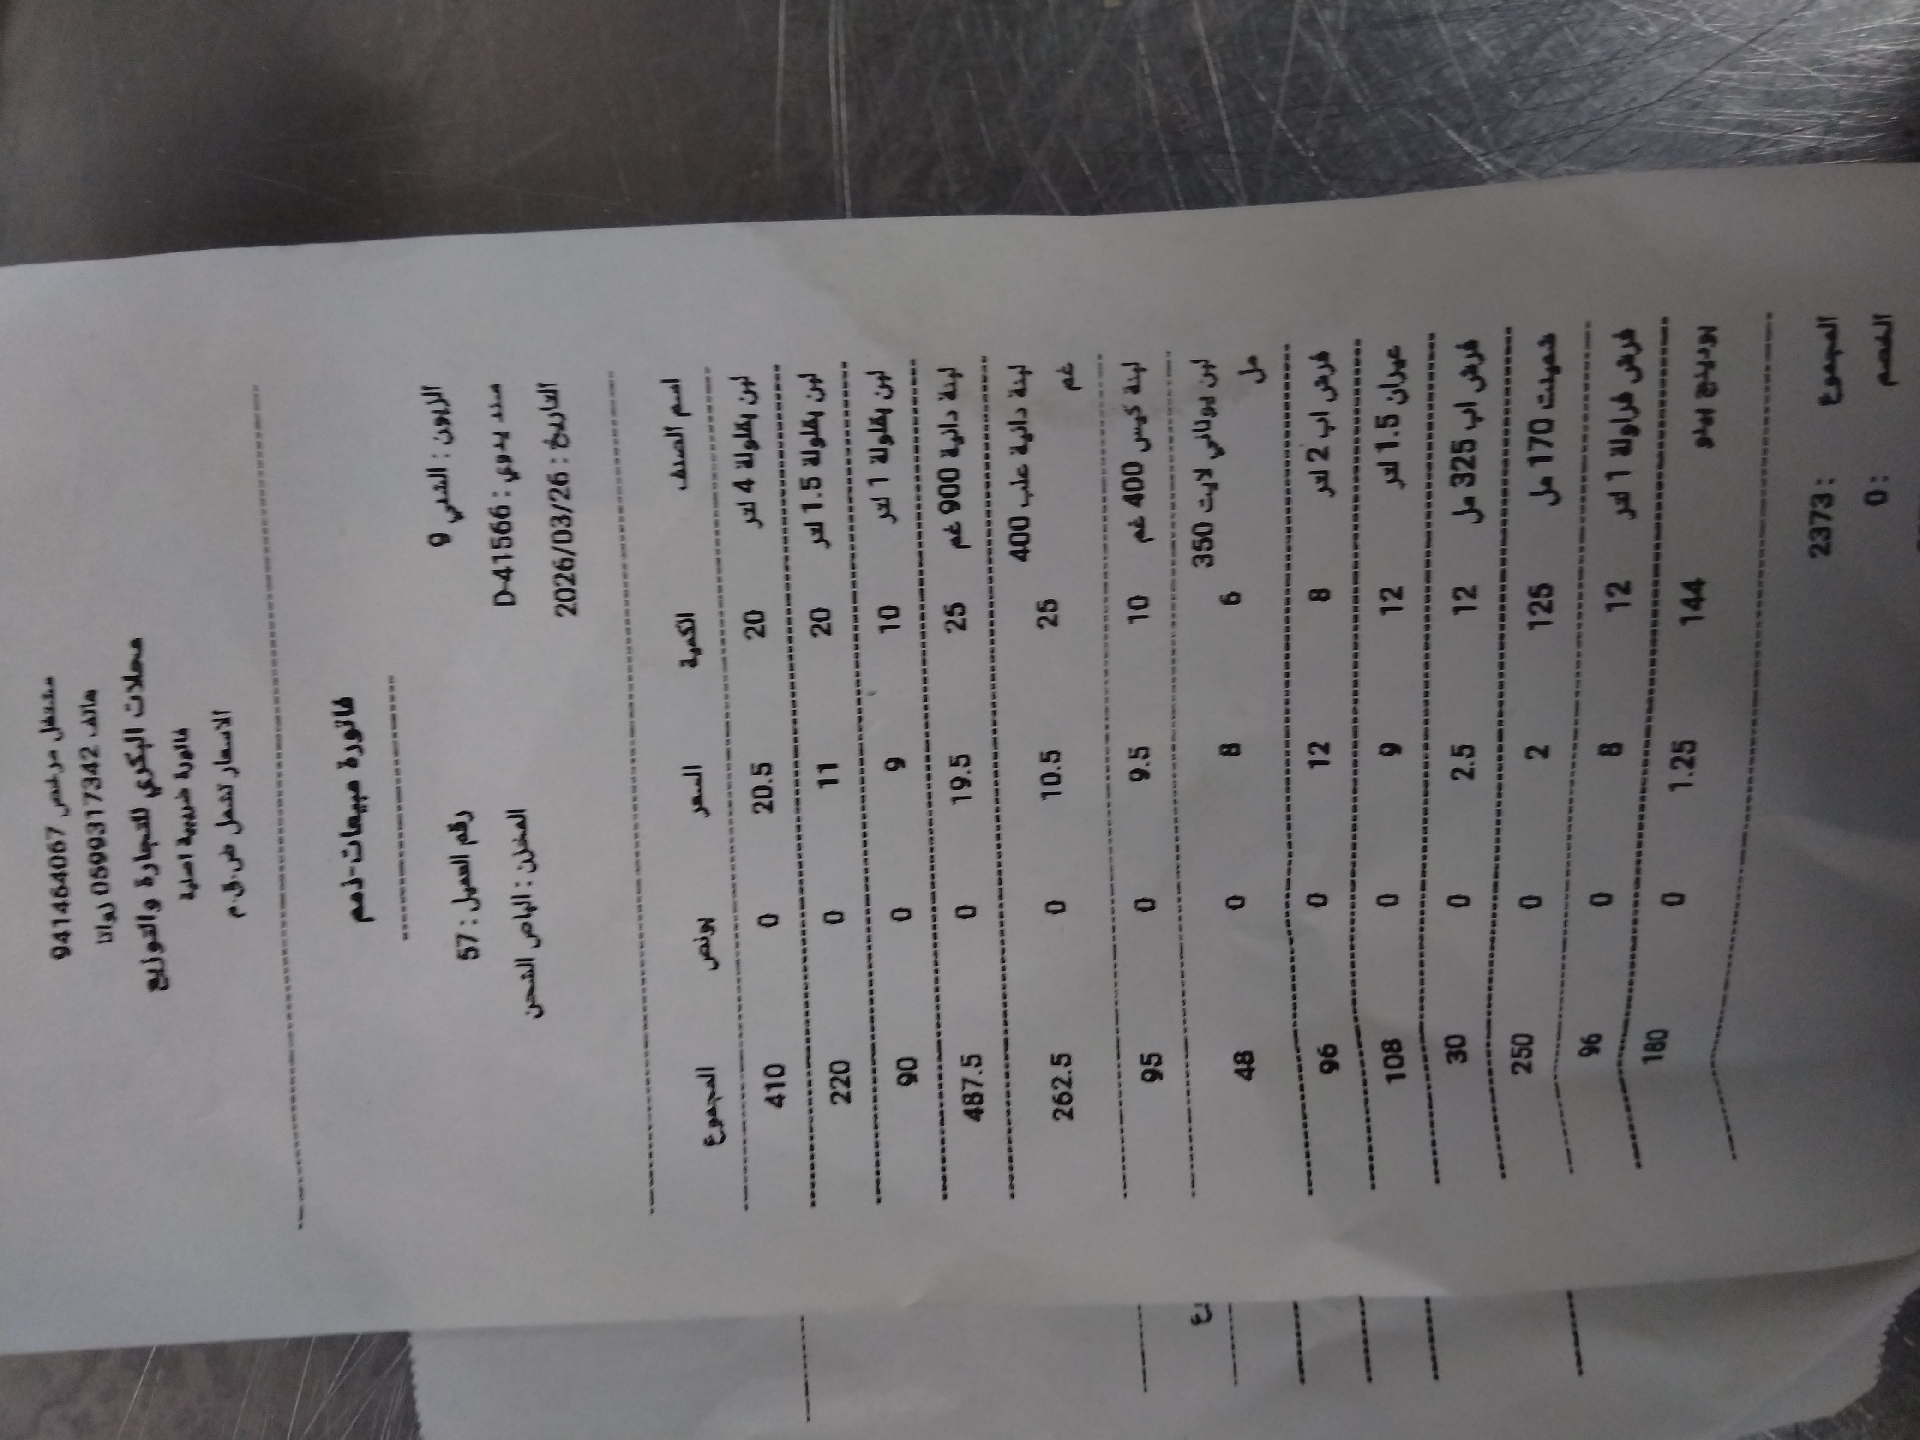 مشتغل مرخص 941464067
هاتف 0599317342 روانا
محلات البكري للتجارة والتوزيع
فاتورة ضريبية اصلية
الاسعار تشمل ض.ق.م
فاتورة مبيعات-ذمم
الزبون : الشلبي 9
رقم العميل : 57
سند يدوي : D-41566
المخزن : الباص الشحن
التاريخ : 2026/03/26
اسم الصنف الكمية السعر بونص المجموع
لبن بقلولة 4 لتر 20 20.5 0 410
لبن بقلولة 1.5 لتر 20 11 0 220
لبن بقلولة 1 لتر 10 9 0 90
لبنة دانية 900 غم 25 19.5 0 487.5
لبنة دانية علب 400 25 10.5 0 262.5
غم
لبنة كيس 400 غم 10 9.5 0 95
لبن يوناني لايت 350 6 8 0 48
مل
فرش اب 2 لتر 8 12 0 96
عيران 1.5 لتر 12 9 0 108
فرش اب 325 مل 12 2.5 0 30
شمينت 170 مل 125 2 0 250
فرش فراولة 1 لتر 12 8 0 96
بودينج بينو 144 1.25 0 180
المجموع : 2373
الخصم : 0